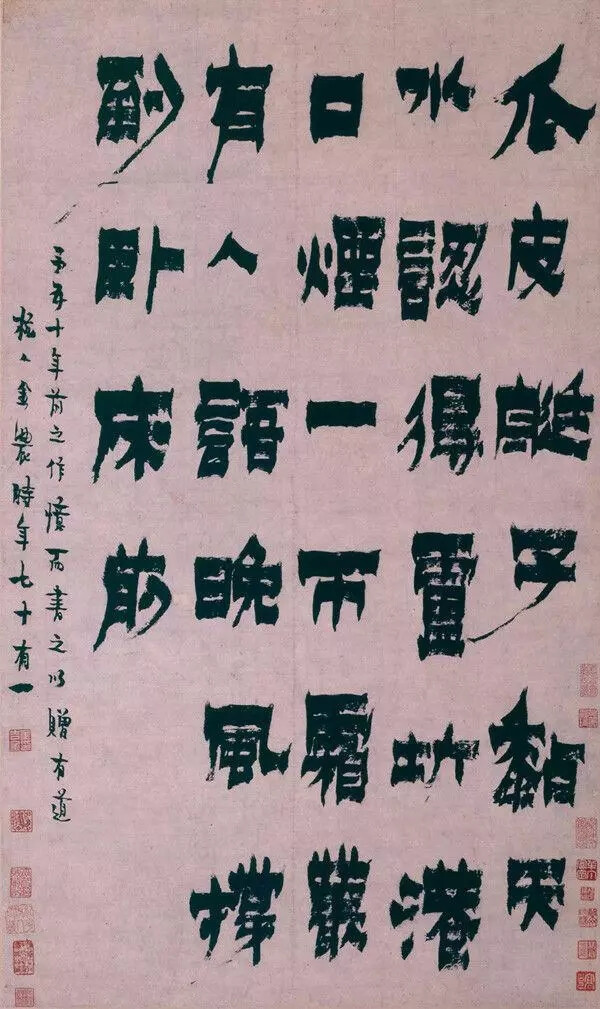 瓜皮艇子黏天
水認得坊港
口煙一霜叢
有人語晚風撐
臥床前
予五十年前之作憶而書之以贈有道
杭人金農時年七十有一